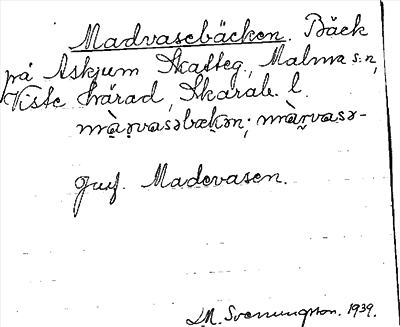 Madvasebäcken. Bäck
på Askjum Skatteg., Malma s:n,
Viste härad, Skarab. l.
màṛvasəbækən; màṛvasə-
Jmf. Madevasen.
L.M. Svenungsson. 1939.